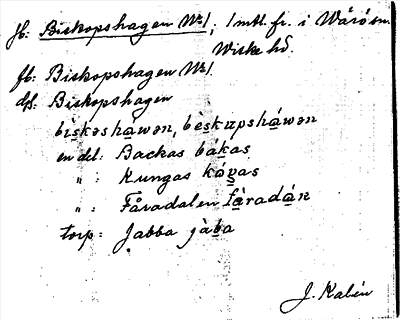 fb: Biskopshagen Nr 1, 1 mtl. fr. i Värö sn.
Viske hd.
fb: Biskopshagen Nr 1.
dpl: Biskopshagen
biskəshàwən, bèskupshàwən
en del: Backas bákas
" : Kungas
" : Fåradalen fàradán
torp: Jabba jàba
J. Kalén